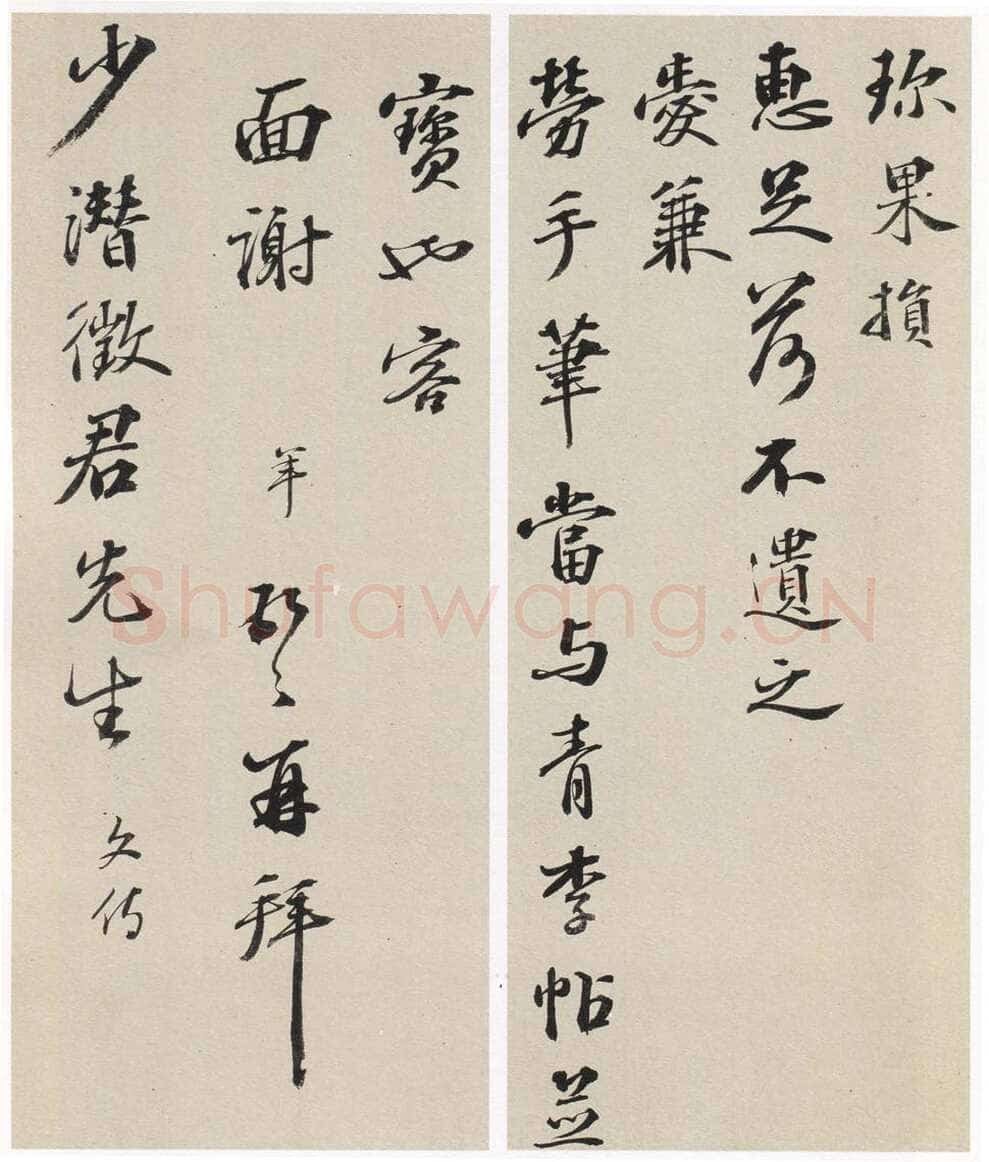 珎果損
惠足荷不遺之
愛兼
勞手筆當与青李帖並
寶也容
面謝 年
再拜
少潛徵君先生 文侍
Shufawang.CN